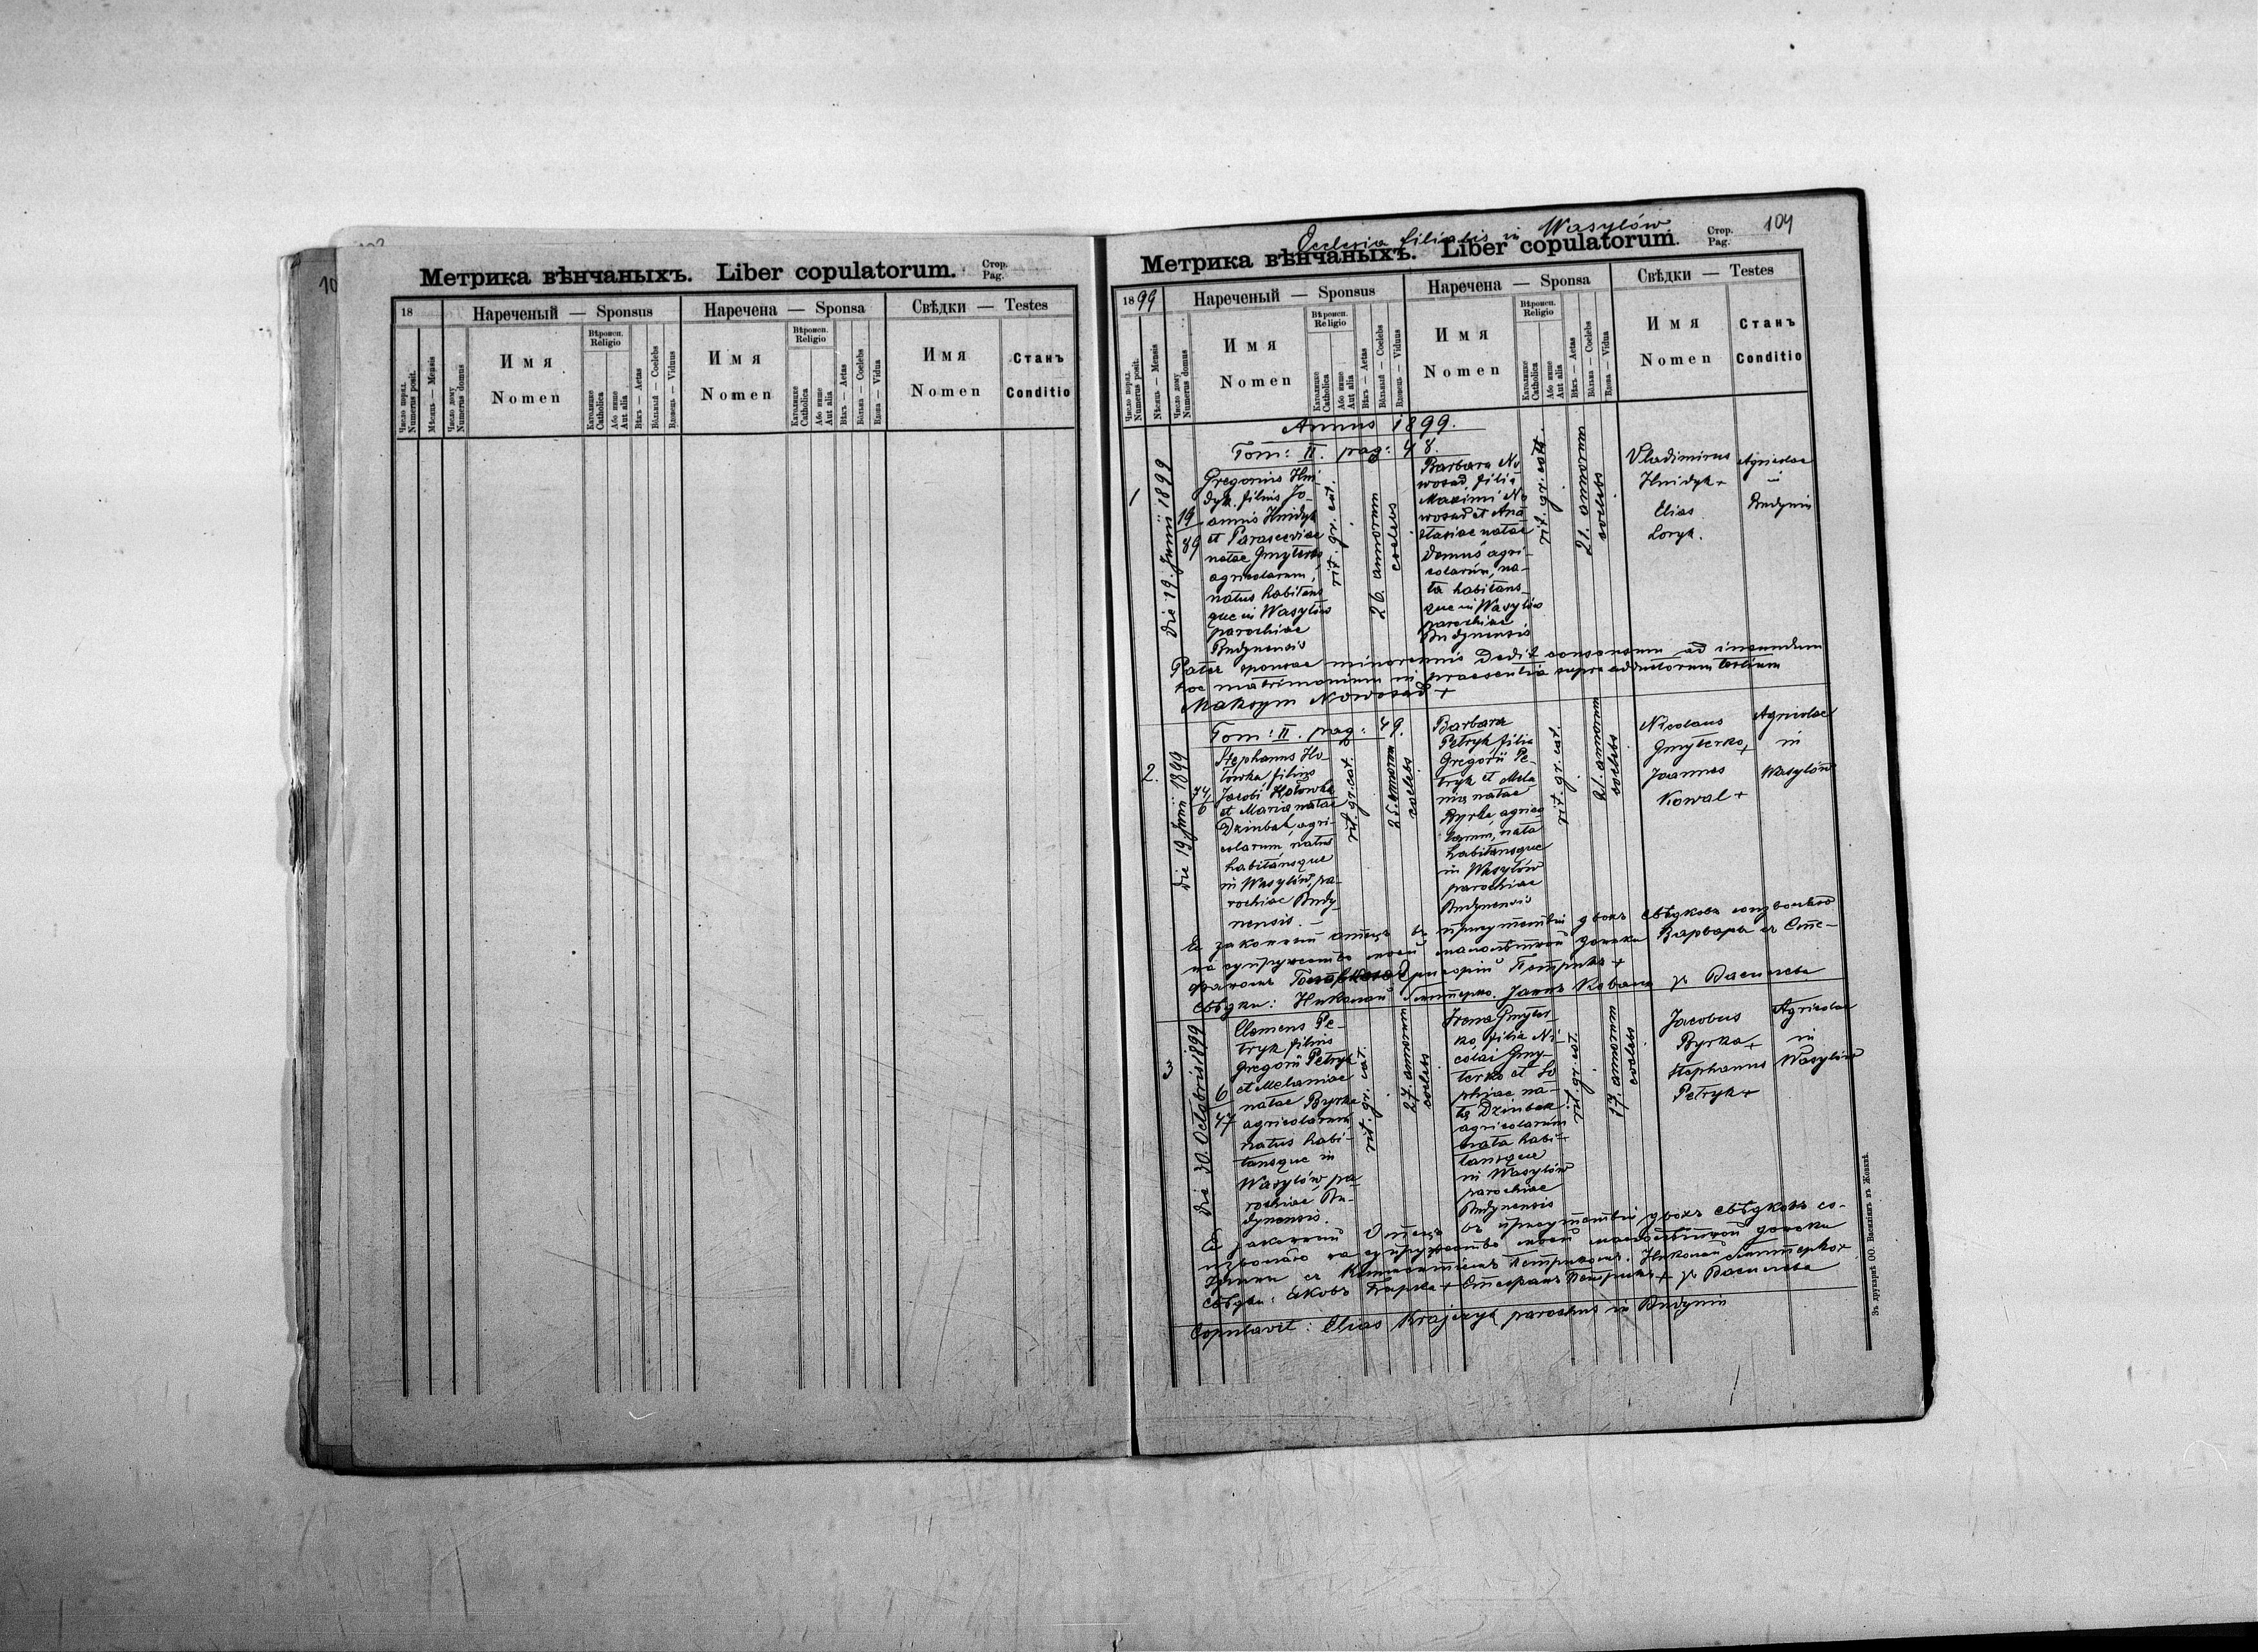 Метрика вѣнчаныхъ. Liber copulatorum. Стор. Pag.
18
Нареченый — Sponsus
Наречена — Sponsa
Свѣдки — Testes
Число поряд. Numerus posit.
Мѣсяць — Mensis
Число дому Numerus domus
Имя
Nomen
Вѣроисп. Religio
Католицке Catholica
Або инше Aut alia
Вѣкъ — Aetas
Вôльный — Coelebs
Вдовець — Viduus
Имя
Nomen
Вѣроисп. Religio
Католицке Catholica
Або инше Aut alia
Вѣкъ — Aetas
Вôльна — Coelebs
Вдова — Vidua
Имя
Nomen
Станъ
Conditio
Ecclesia filialis in Wasylów
104
Метрика вѣнчаныхъ. Liber copulatorum. Стор. Pag.
1899
Нареченый — Sponsus
Наречена — Sponsa
Свѣдки — Testes
Число поряд. Numerus posit.
Мѣсяць — Mensis
Число дому Numerus domus
Имя
Nomen
Вѣроисп. Religio
Католицке Catholica
Або инше Aut alia
Вѣкъ — Aetas
Вôльный — Coelebs
Вдовець — Viduus
Имя
Nomen
Вѣроисп. Religio
Католицке Catholica
Або инше Aut alia
Вѣкъ — Aetas
Вôльна — Coelebs
Вдова — Vidua
Имя
Nomen
Станъ
Conditio
Annus 1899.
Tom: II. pag: 48.
1
Die 19. Junii 1899
19
89
Gregorius Hni-
dyk filius Jo-
annis Hnidyk
et Parasceviae
natae Gmyterko
agricolarum,
natus habitans
que in Wasylów
parochiae
Budynensis
rit. gr. cat.
26. annorum
coelebs
Barbara No
wosad, filia
Maximi No
wosad et Ana
stasiae natae
Demus agri-
colarum, na-
ta habitans
que in Wasylów
parochiae
Budynensis
rit. gr. cath.
21. annorum
coelebs
Vladimirus
Hnidyk +
Elias
Loryk.
Agricolae
in
Budynin
Pater sponsae minorennis dedit consensum ad ineundum
hoc matrimonium in praesentia supra adductorum testium
Maksym Nowosad +
Tom: II. pag: 49.
2.
Die 19 Junii 1899
74
6
Stephanus Ho-
łowka, filius
Jacobi Hołowka
et Maria natae
Dzinbak, agri-
colarum, natus
habitansque
in Wasylów, pa-
rochiae Budy-
nensis. —
rit. gr. cat.
25. annorum
coelebs
Barbara
Petryk filia
Gregorii Pe-
tryk et Mela
nia natae
Byrka, agrico
larum, nata
habitansque
in Wasylów
parochiae
Budynensis
rit. gr. cat.
21. annorum
coelebs
Nicolaus
Gmyterko +
Joannes
Kowal +
Agricolae
in
Wasylów
законный отецъ въ присутствіи двохъ свѣдковъ
на супружество моей малолѣтной дочки Варвары съ Сте-
фаномъ Григорій Петрикъ +
свѣдки: Николай Гмитерко. Янъ Коваль зъ Василева
3
Die 30. Octobris 1899
6
47
Clemens Pe-
tryk filius
Gregorii Petryk
et Melaniae
natae Byrka
agricolarum
natus habi-
tansque in
Wasylów, pa-
rochiae Bu-
dynensis.
rit. gr. cat.
27. annorum
coelebs
Irena Gmyter-
ko filia Ni-
colai Gmy-
terko et So
phiae na-
ta Dzinbak
agricolarum
nata habi-
tansque
in Wasylów
parochiae
Budynensis
rit. gr. cat.
17. annorum
coelebs
Jacobus
Byrka +
Stephanus
Petryk +
Agricolae
in
Wasylów
законный Отецъ въ присутствіи двохъ свѣдковъ со-
изволяю на супружество моей малолѣтной дочки
съ Петрикомъ. Николай Гмитерко +
свѣдки: Яковъ Бырка + Стефанъ Петрикъ + зъ Василева
Copulavit: Elias Krajczyk parochus in Budynin
Зъ друкарнѣ ОО. Василіянъ въ Жовквѣ.